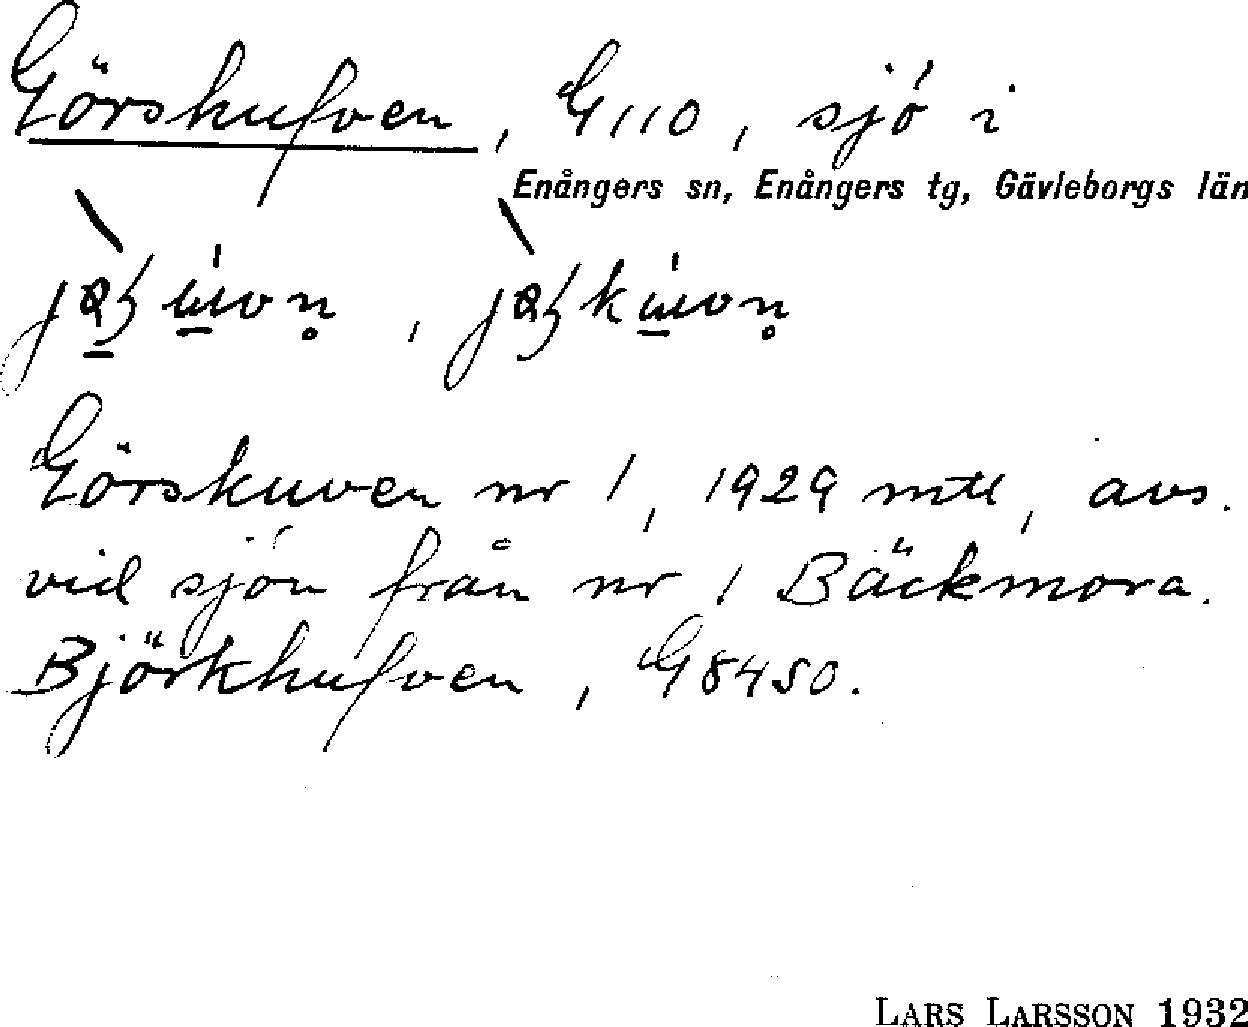 Görskufven, G110, sjö i
Enångers sn, Enångers tg, Gävleborgs län
Görskuven nr 1, 1929 mtl, avs.
vid sjön från nr 1 Bäckmora.
Björkhufven, G8450.
LARS LARSSON 1932